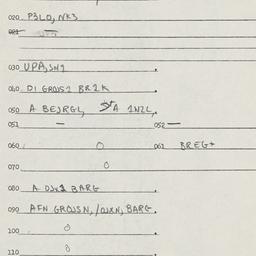 020 P3LO, NK3
021
030 UPA, SN1
040 DI GROJS1 BR2K
050 A BEJRGL, A 1NZL,
051 — 052 —
060 O 061 BREG+
070 O
080 A BARG
090 AFN GROJSN, BARG.
100 O
110 O